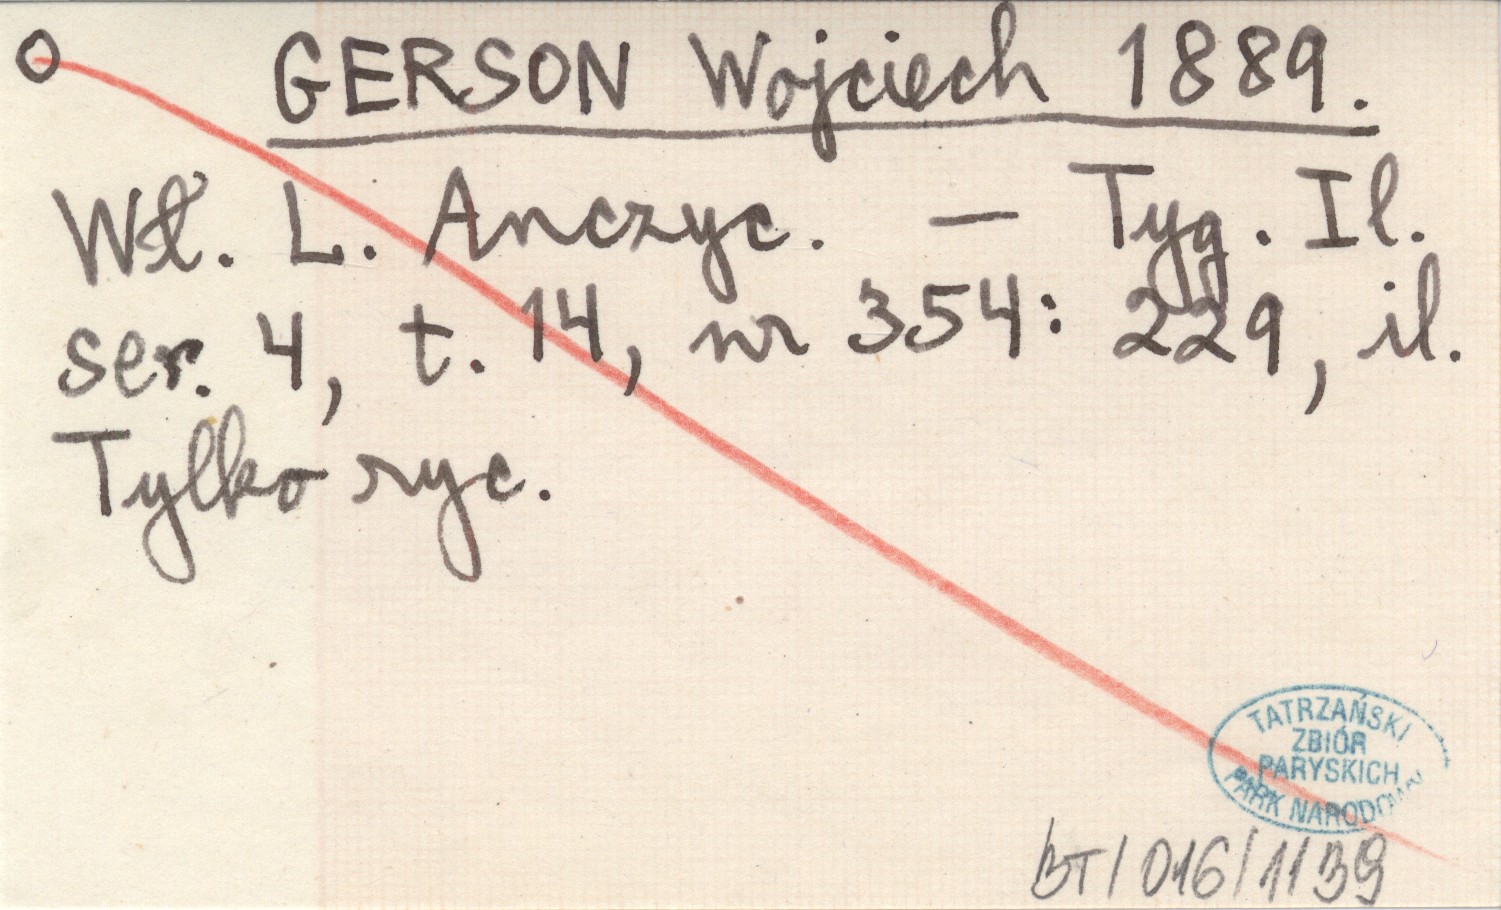 O GERSON Wojciech 1889.
Wł. L. Anczyc. — Tyg. Il.
ser. 4, t. 14, nr 354: 229, il.
Tylko ryc.
TATRZAŃSKI
ZBIÓR
PARYSKICH
PARK NARODOWY
BT/016/1139